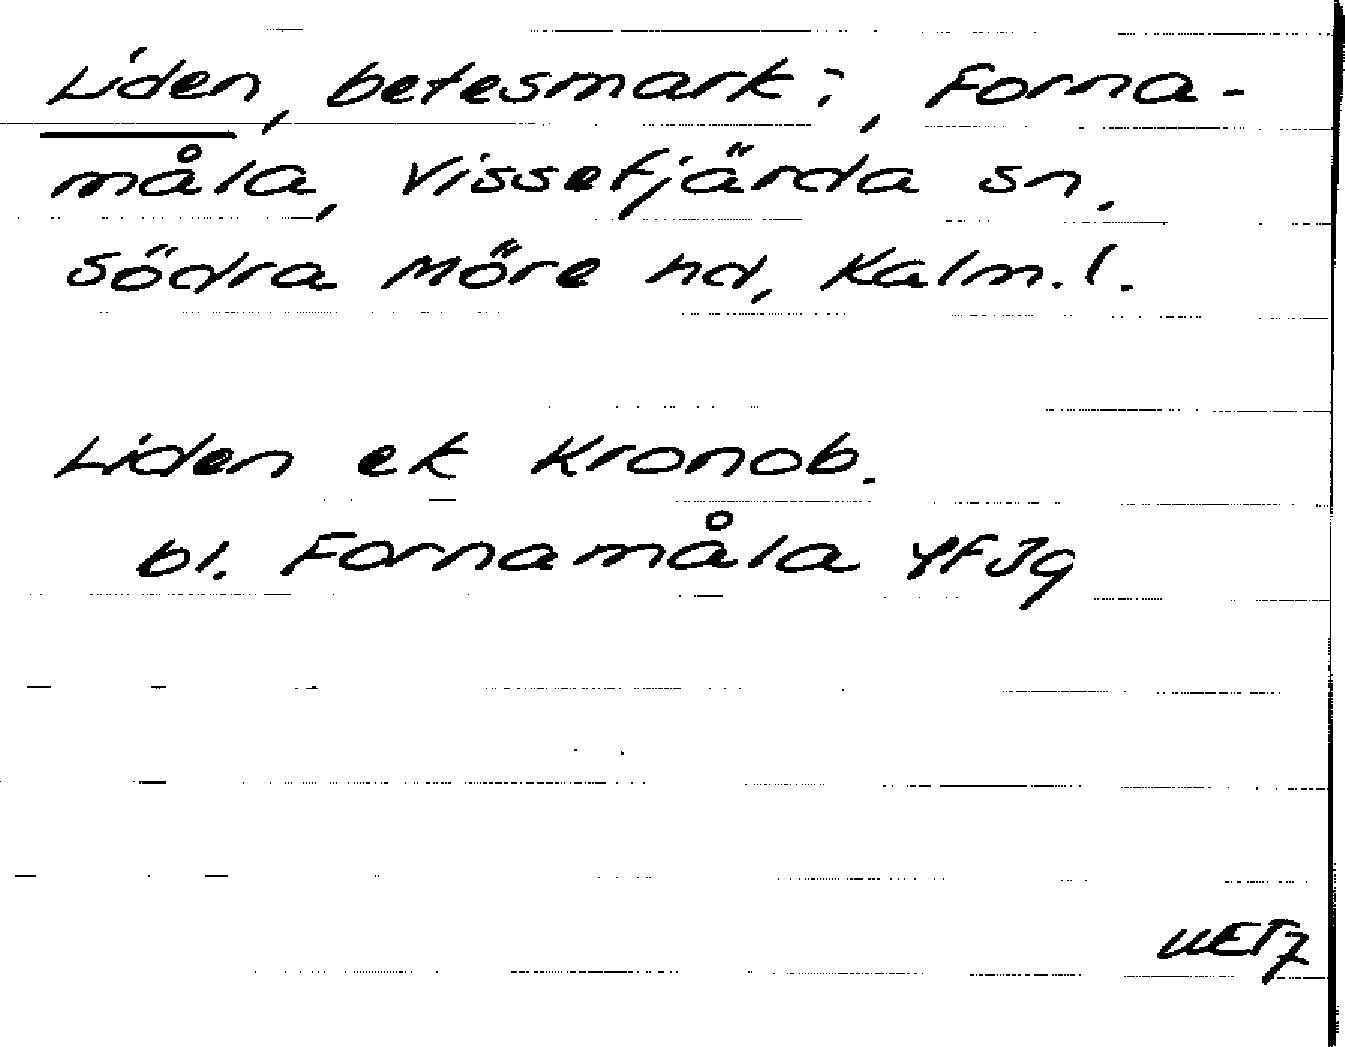 Liden, betesmark i, Forna-
måla, Vissefjärda sn.
Södra Möre hd, Kalm.l.
Liden ek Kronob.
bl. Fornamåla